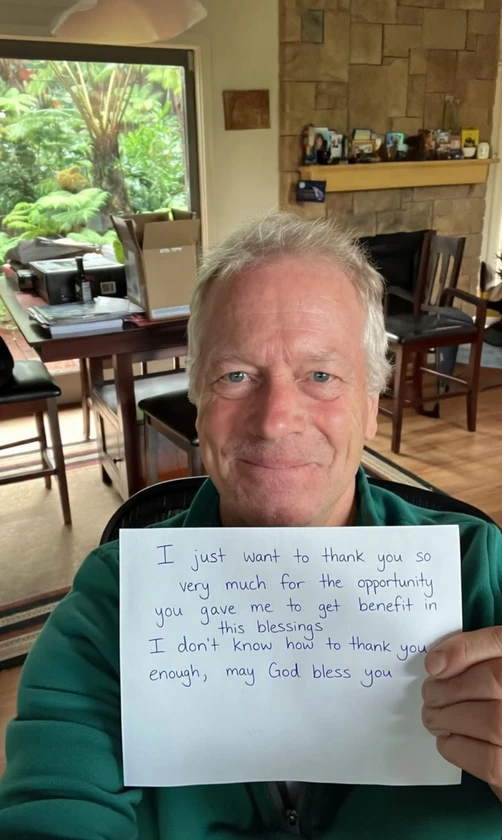 I just want to thank you so
very much for the opportunity
you gave me to get benefit in
this blessings
I don't know how to thank you
enough, may God bless you